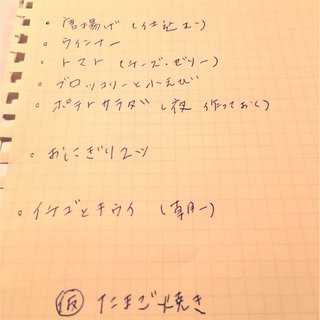 。唐揚げ (仕込ユ)
。ウインナー
。トマト (チーズ・ゼリー)
。ブロッコリーと小えび
。ポテトサラダ (夜 作っておく)
。おにぎり2ツ
。イチゴとキウイ (朝一)
(仮) たまご焼き